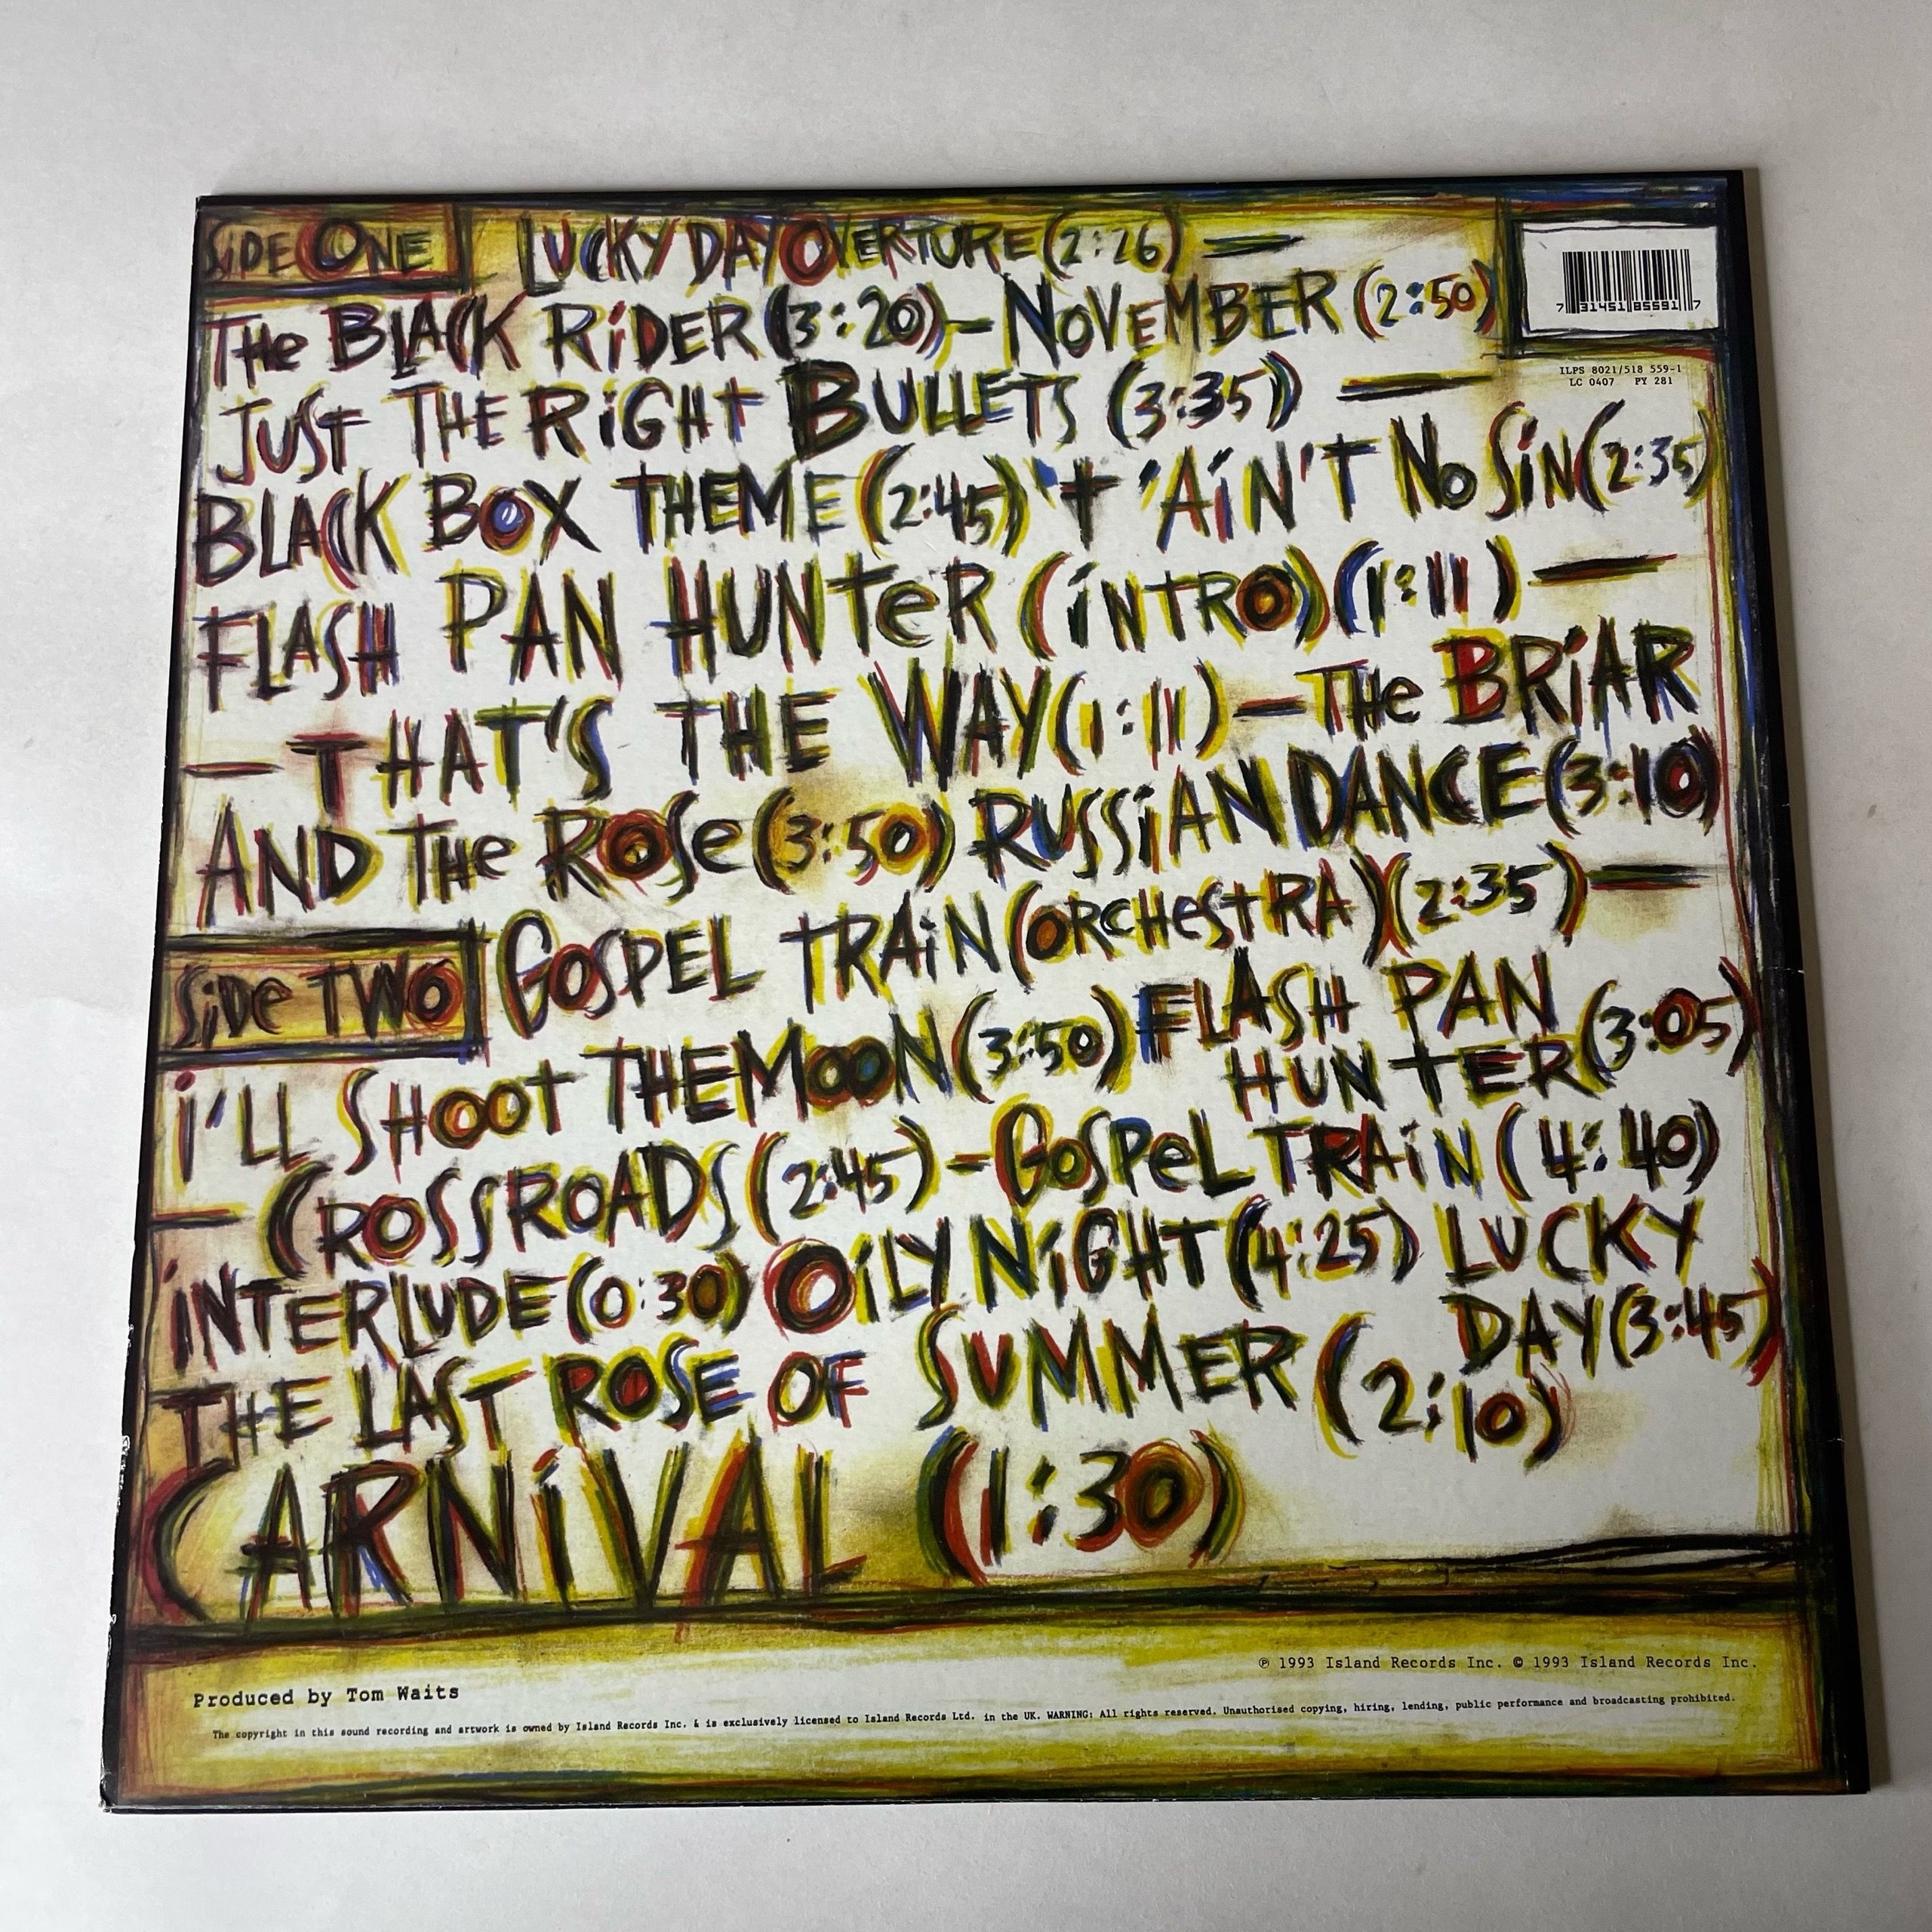 SiDE ONE LUCKY DAY OVERTURE (2:26) —
THe BLACK RiDER (3:20) — NOVEMBER (2:50)
JUST THE RiGHT BULLETS (3:35) —
BLACK BOX THEME (2:45) 't 'AiN'T No SiN (2:35)
FLASH PAN HUNTeR (iNTRO) (1:11) —
— THAT'S THE WAY (1:11) — THe BRiAR
AND THe ROSe (3:50) RUSSiAN DANCE (3:10)
GOSPEL TRAiN (ORCHeSTRA) (2:35) —
SiDe TWO
i'LL SHOOT THE MOON (3:50) FLASH PAN
HUNTER (3:05)
— CROSSROADS (2:45) — GOSPeL TRAiN (4:40)
iNTERLUDE (0:30) OiLY NiGHT (4:25) LUCKY
DAY (3:45)
THE LAST ROSE OF SUMMER (2:10)
CARNiVAL (1:30)
7 31451 85591 7
ILPS 8021/518 559-1
LC 0407 PY 281
℗ 1993 Island Records Inc. © 1993 Island Records Inc.
Produced by Tom Waits
The copyright in this sound recording and artwork is owned by Island Records Inc. & is exclusively licensed to Island Records Ltd. in the UK. WARNING: All rights reserved. Unauthorised copying, hiring, lending, public performance and broadcasting prohibited.